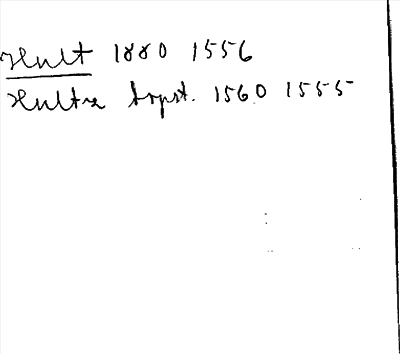 Hult 1880 1556
Hultra torpst. 1560 1555